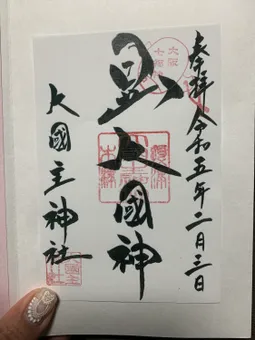 奉拝 令和五年二月三日
大阪
七福神
日出大國神
大國主神社